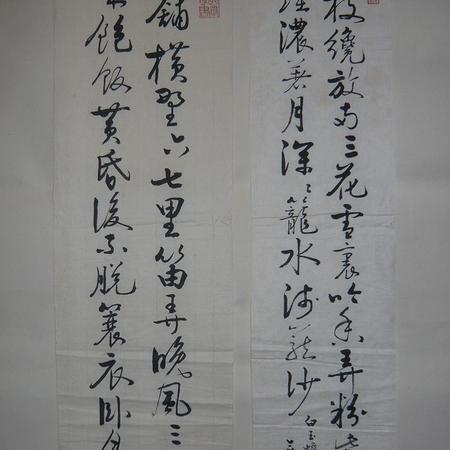 枝纔放兩三花雪裏吟香弄粉些
濃著月深〻籠水淺籠沙
白玉蟾
鋪橫野六七里笛弄晚風三
飽飯黃昏後不脫蓑衣臥